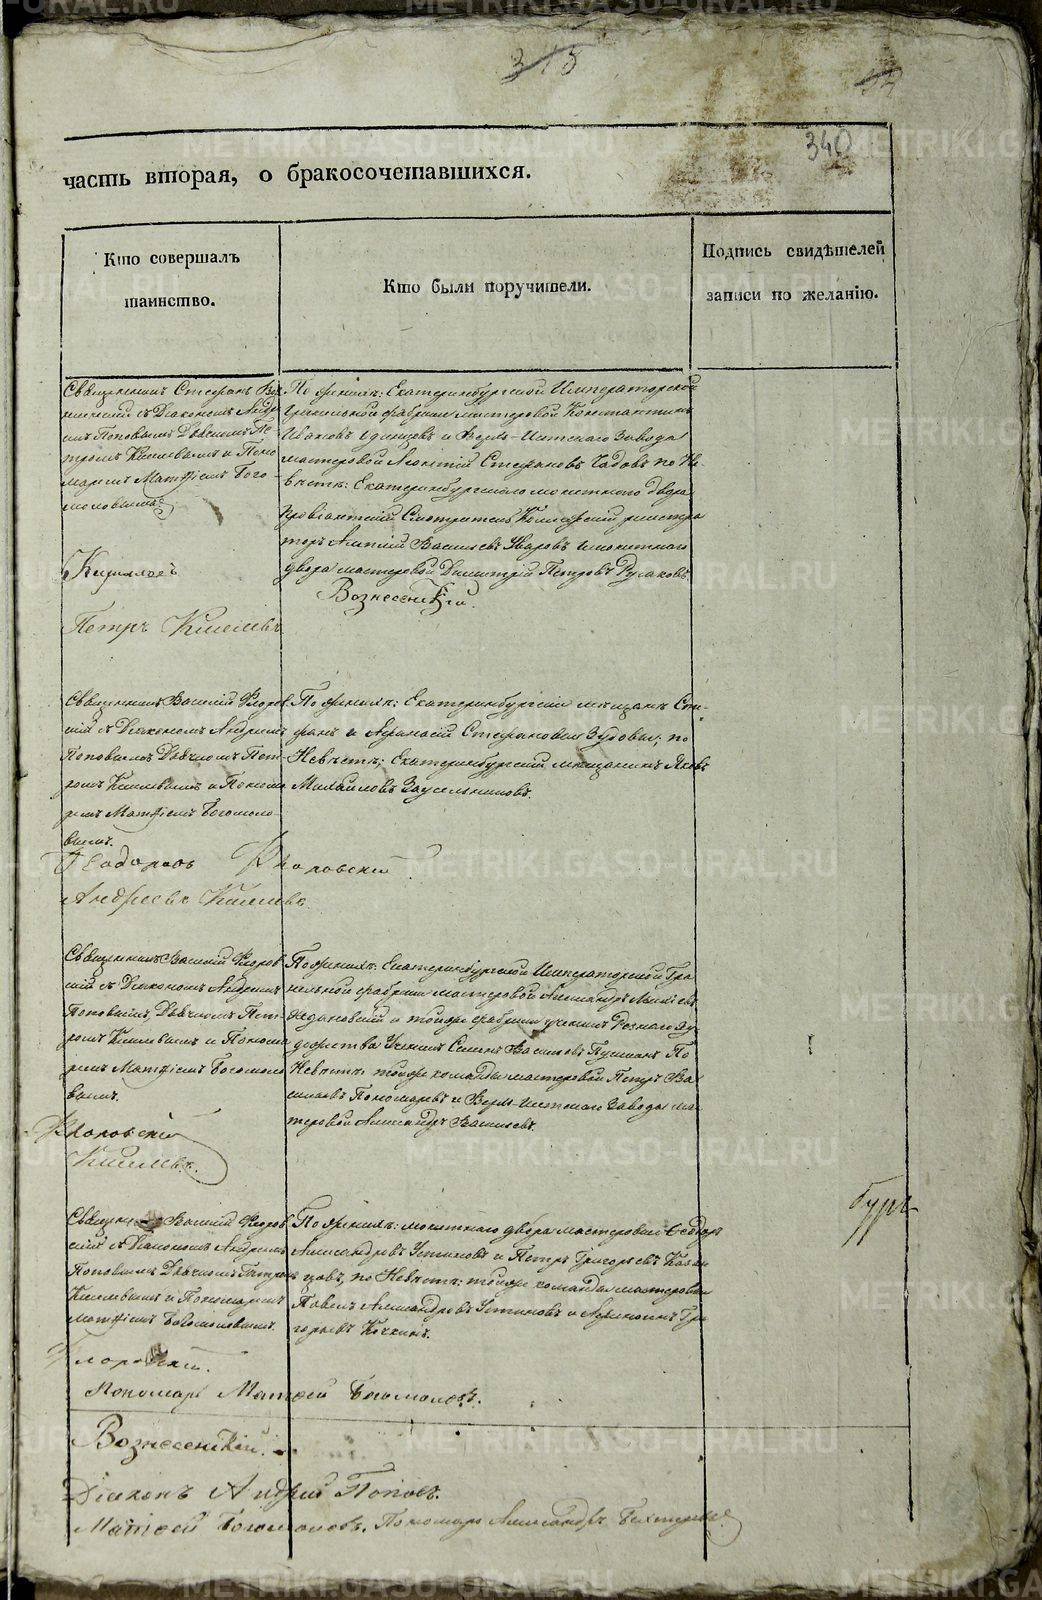 315
340
часть вторая, о бракосочетавшихся.
Кто совершалъ
таинство.
Кто были поручители.
Подпись свидѣтелей
записи по желанію.
Священникъ Стефанъ Воз
несенскій съ Діакономъ Андре
емъ Поповымъ Дьячкомъ Пе
тромъ Киселевымъ и Поно
маремъ Матѳіемъ Бого
моловымъ
Петръ Киселевъ
По женихѣ: Екатеринбургской Императорской
Гранильной фабрики мастеровой Константинъ
Ивановъ и Верхъ-Исетскаго Завода
мастеровой Леонтій Стефановъ по Не
вѣстѣ: Екатеринбургскаго монетнаго двора
Провіантскій Смотритель регистра
торъ Василіевъ Уваровъ и монетнаго
двора мастеровой Димитрій Петровъ Русаковъ.
Вознесенскій.
Священникъ Василій Флоров
скій съ Діакономъ Андреемъ
Поповымъ Дьячкомъ Пет-
ромъ Киселевымъ и Понома
ремъ Матѳіемъ Богомоло-
вымъ.
По женихѣ: Екатеринбургскіе мѣщане Сте-
фанъ и Афанасій Стефановы Зудовы; по
Невѣстѣ; Екатеринбургскій мѣщанинъ Яковъ
Михайловъ Засыльниковъ.
Флоровскій
Андреевъ Киселевъ
Священникъ Василій Флоров
скій съ Діакономъ Андреемъ
Поповымъ, Дьячкомъ Пет-
ромъ Киселевымъ и Понома
ремъ Матѳіемъ Богомоло
вымъ.
Флоровскій
Киселевъ.
По женихѣ: Екатеринбургской Императорской Гра
нильной фабрики мастеровой Александръ
и тойже фабрики ученикъ Рознаго Ху
дожества Ученикъ Семенъ Васильевъ По
Невѣстѣ: тойже команды мастеровой Петръ Ва
сильевъ Пономаревъ и Верхъ-Исетскаго Завода мас
теровой Александръ Васильевъ.
Священникъ Василій Флоров
скій съ Діакономъ Андреемъ
Поповымъ Дьячкомъ Петромъ
Киселевымъ и Пономаремъ
Матѳіемъ Богомоловымъ.
По женихѣ: монетнаго двора мастеровые Ѳедоръ
Александровъ Устиновъ и Петръ Григорьевъ Казан
цовъ, по Невѣстѣ: тойже команды мастеровые
Павелъ Александровъ Устиновъ и Гри
горьевъ
Флоровскій.
Пономарь Матѳей Богомоловъ.
Вознесенскій.
Діаконъ Андрей Поповъ.
Матѳей Богомоловъ. Пономарь Александръ
METRIKI.GASO-URAL.RU